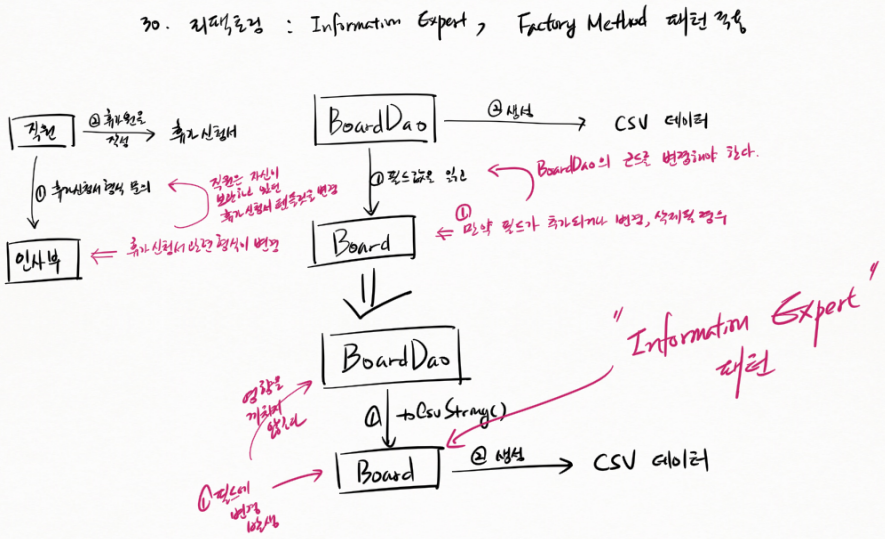 30. 리팩토링 : Information Expert, Factory Method 패턴 적용
직원
② 휴가원을
작성
휴가신청서
① 휴가신청서 형식 문의
직원은 자신이
보관하고 있던
휴가신청서 템플릿을 변경
인사부
휴가신청서 관련 형식이 변경
BoardDao
② 생성
CSV 데이터
① 필드값을 읽고
BoardDao의 코드를 변경해야 한다.
Board
①
만약 필드가 추가되거나 변경, 삭제될 경우
BoardDao
"Information Expert"
패턴
영향을
끼치지
않는다
① toCsvString()
Board
② 생성
CSV 데이터
① 필드에
변경
발생